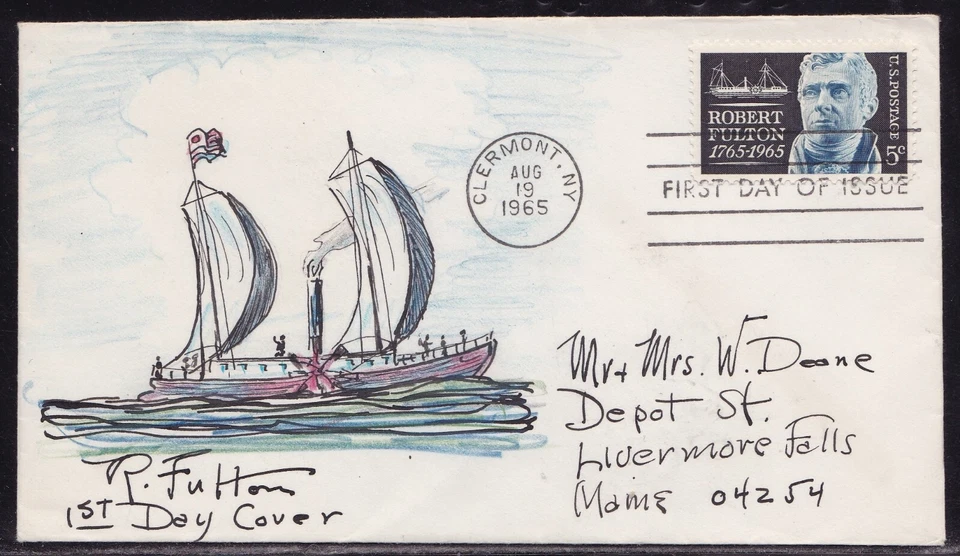 ROBERT
FULTON
1765-1965
U.S. POSTAGE
5c
CLERMONT, NY
AUG
19
1965
FIRST DAY OF ISSUE
Mr + Mrs. W. Deane
Depot St.
Livermore Falls
Maine 04254
R. Fulton
1ST Day Cover